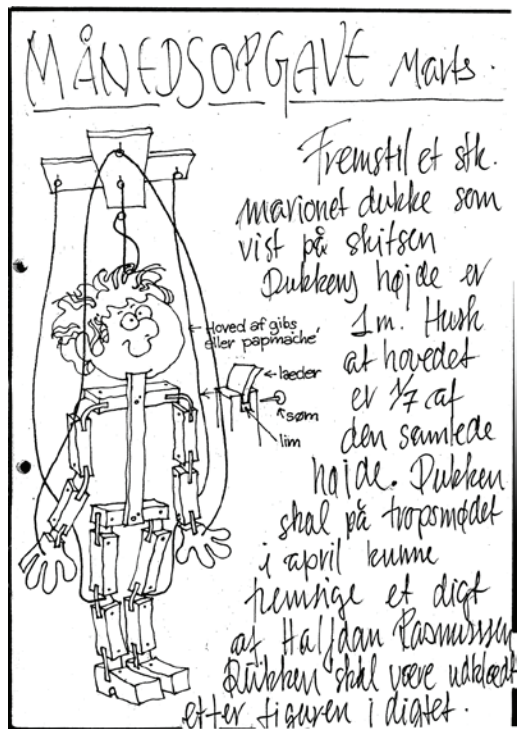 MÅNEDSOPGAVE Marts.
Fremstil et stk.
marionet dukke som
vist på skitsen
Dukkens højde er
1m. Husk
at hovedet
er 1/7 af
den samlede
højde. Dukken
skal på tropsmødet
i april kunne
fremsige et digt
af Halfdan Rasmussen
Dukken skal være udklædt
efter figuren i digtet.
Hoved af gibs
eller papmaché
læder
søm
lim